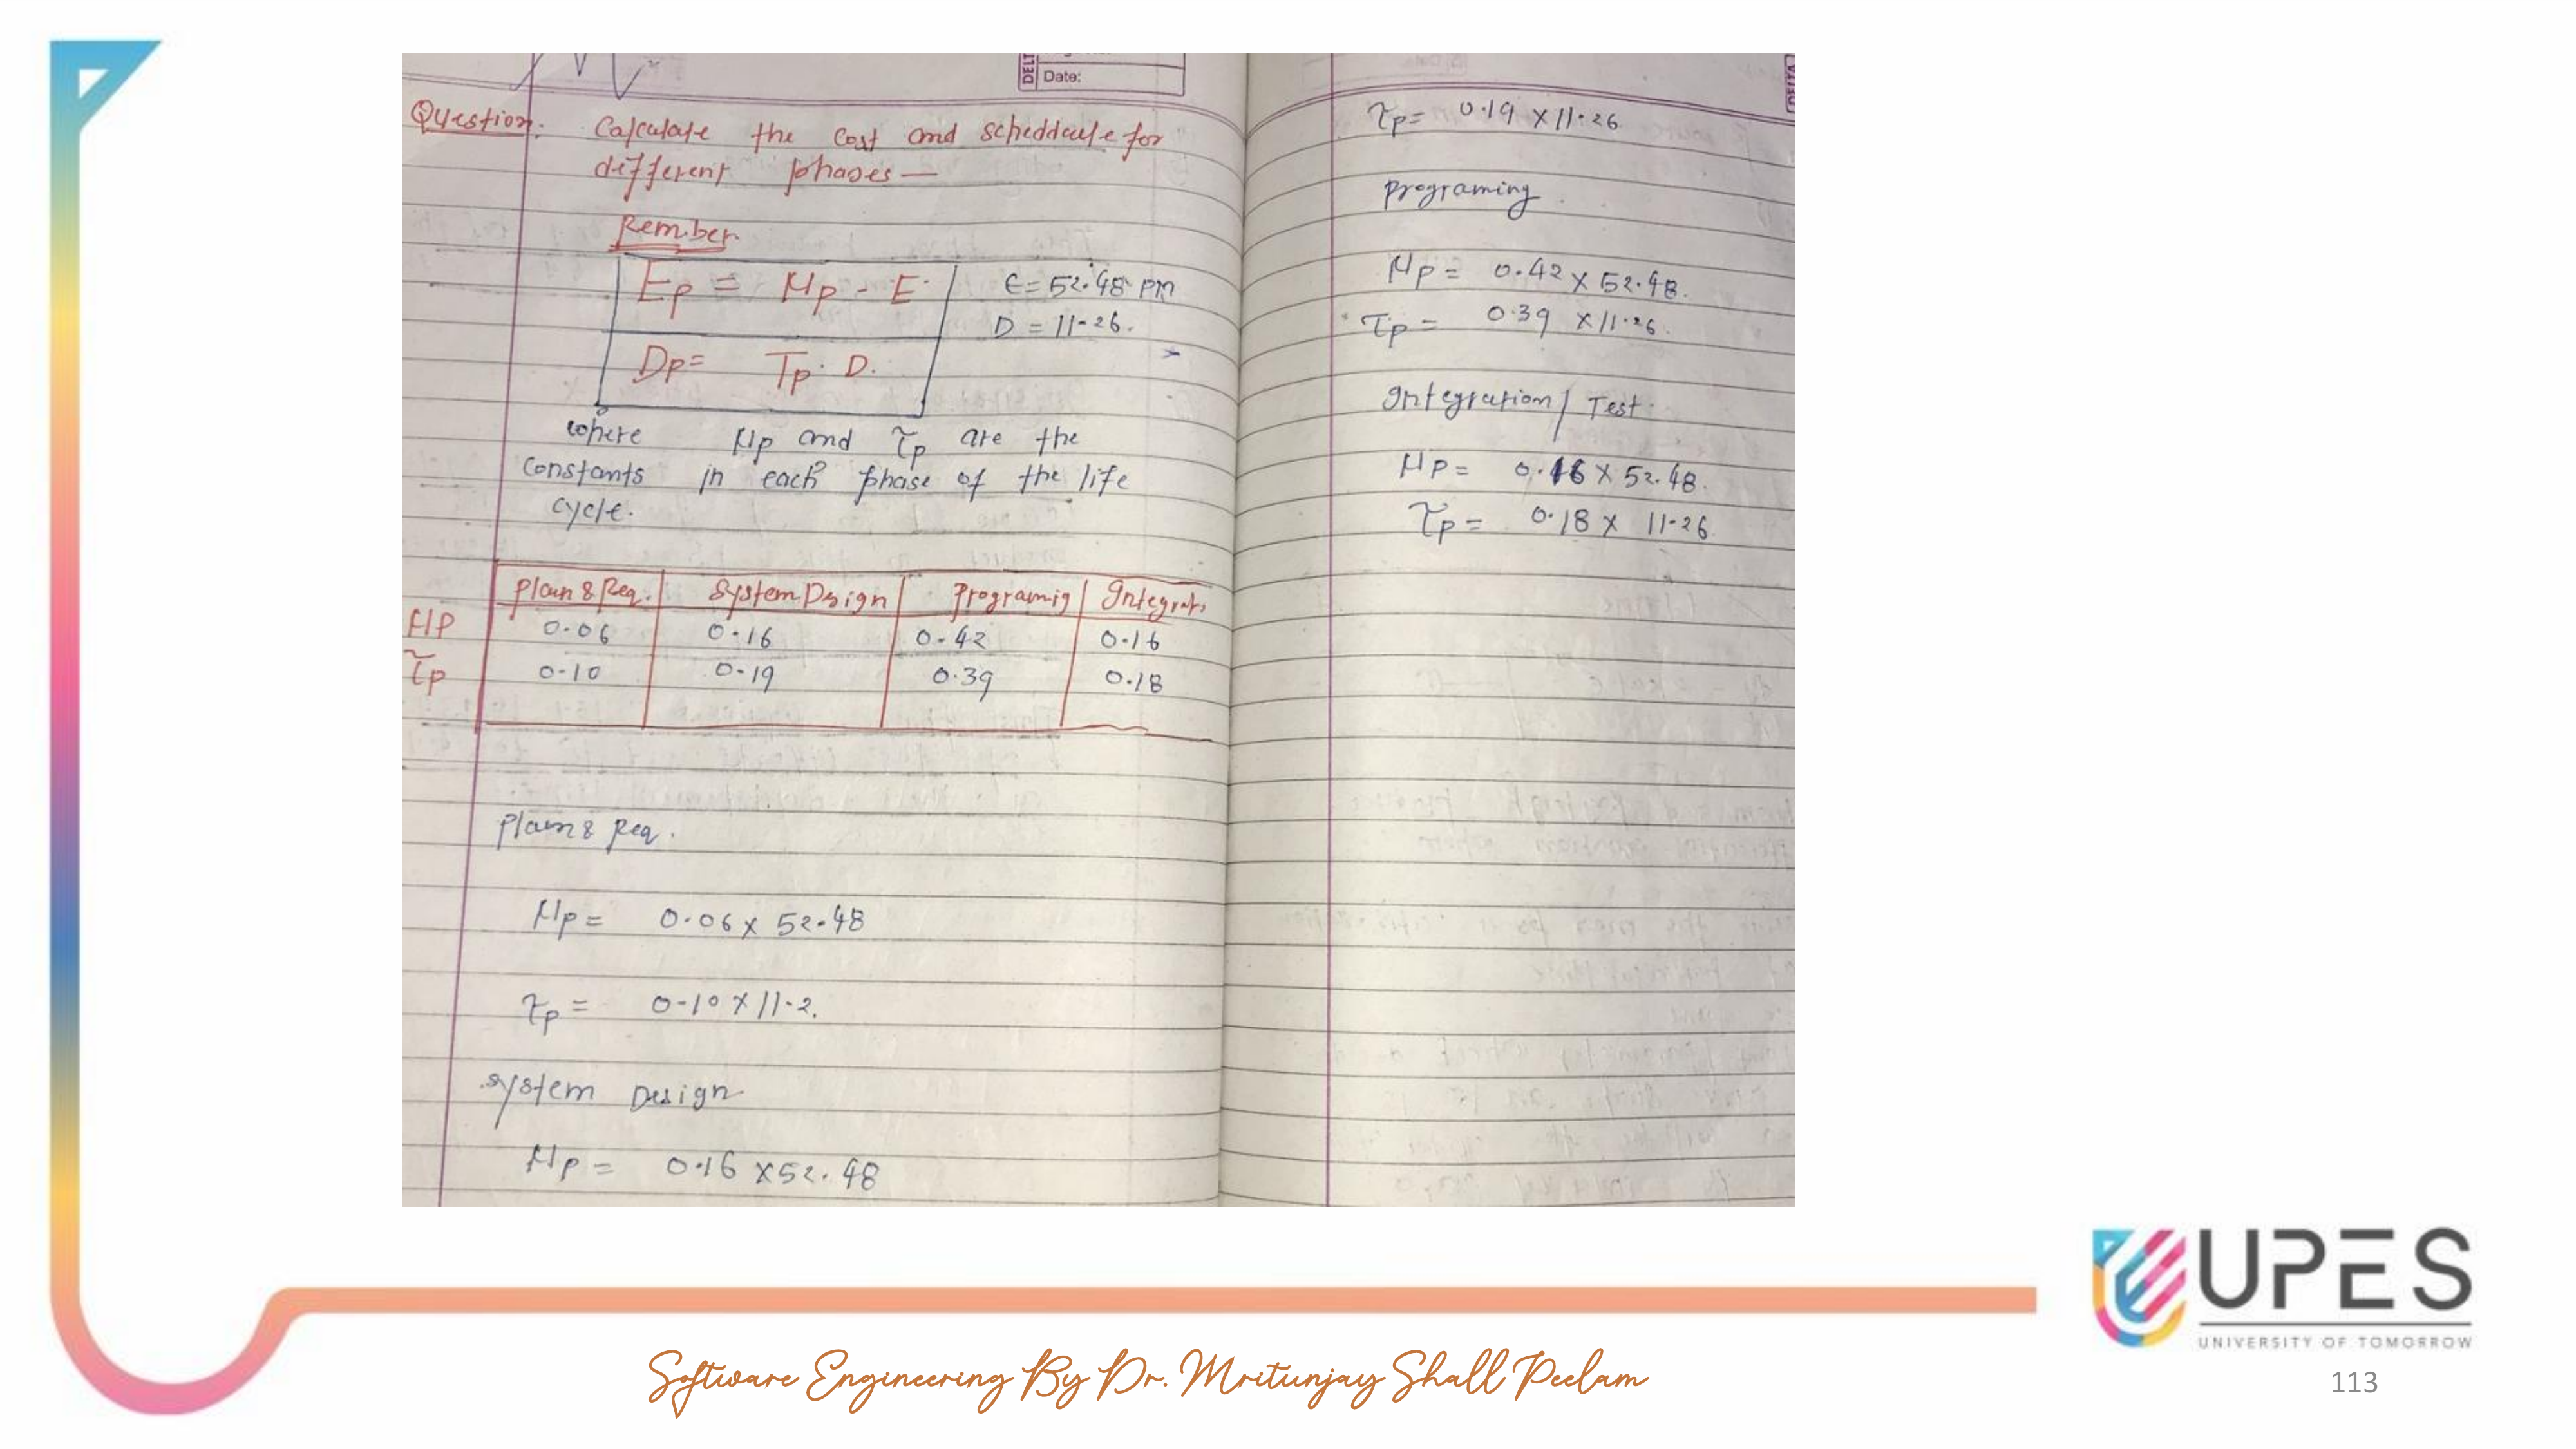 Date:
Question: Calculate the cost and scheddule for
different phases —
Rember
Ep = μp - E
E = 52.48 PM
D = 11.26.
Dp = Tp · D.
where μp and τp are the
constants in each phase of the life
cycle.
Plan & Req. System Dsign Programig Integrat.
μp 0.06 0.16 0.42 0.16
τp 0.10 0.19 0.39 0.18
Plan & Req.
μp = 0.06 x 52.48
τp = 0.10 x 11.2.
System Design
μp = 0.16 x 52.48
τp = 0.19 x 11.26
Programing
μp = 0.42 x 52.48.
τp = 0.39 x 11.26.
Integration / Test.
μp = 0.16 x 52.48.
τp = 0.18 x 11.26.
UPES
UNIVERSITY OF TOMORROW
Software Engineering By Dr. Mritunjay Shall Peelam
113